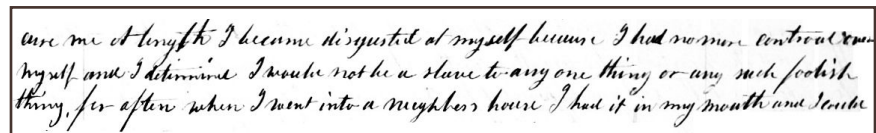 cure me at length I became disgusted at myself because I had no more controul over
myself and I determined I would not be a slave to any one thing or any such foolish
thing, for often when I went into a neighbors house I had it in my mouth and I would